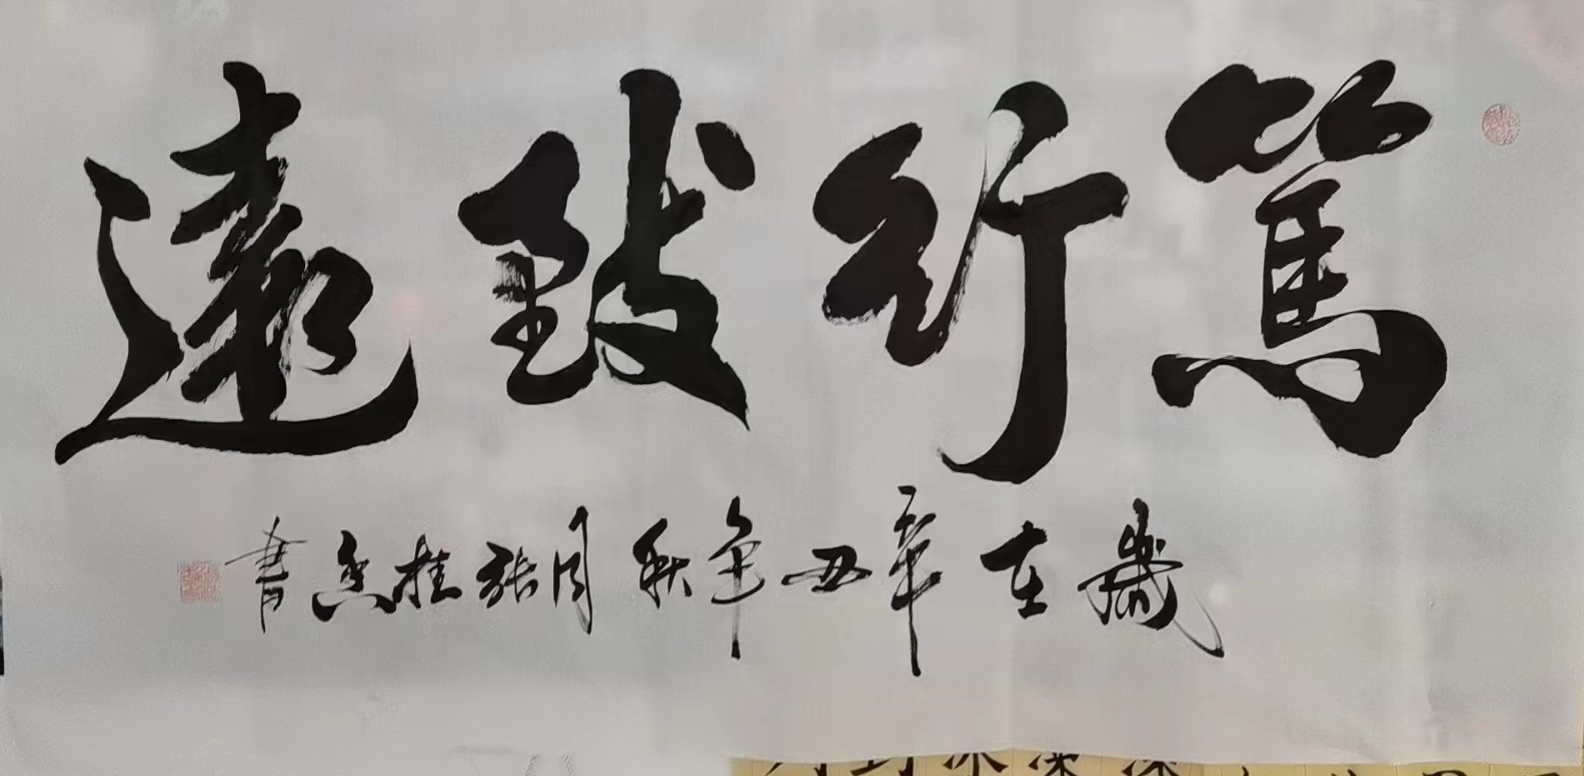 篤行致遠
歲在辛丑年秋月張桂香書